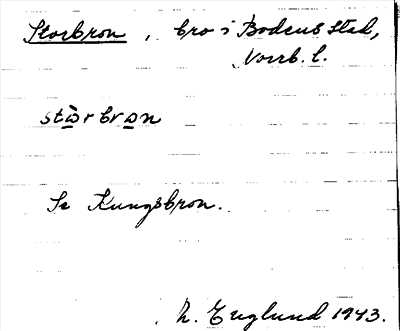 Storbron, bro i Bodens stad,
Norrb. l.
stòrbron
Se Kungsbron.
N. Englund 1943.